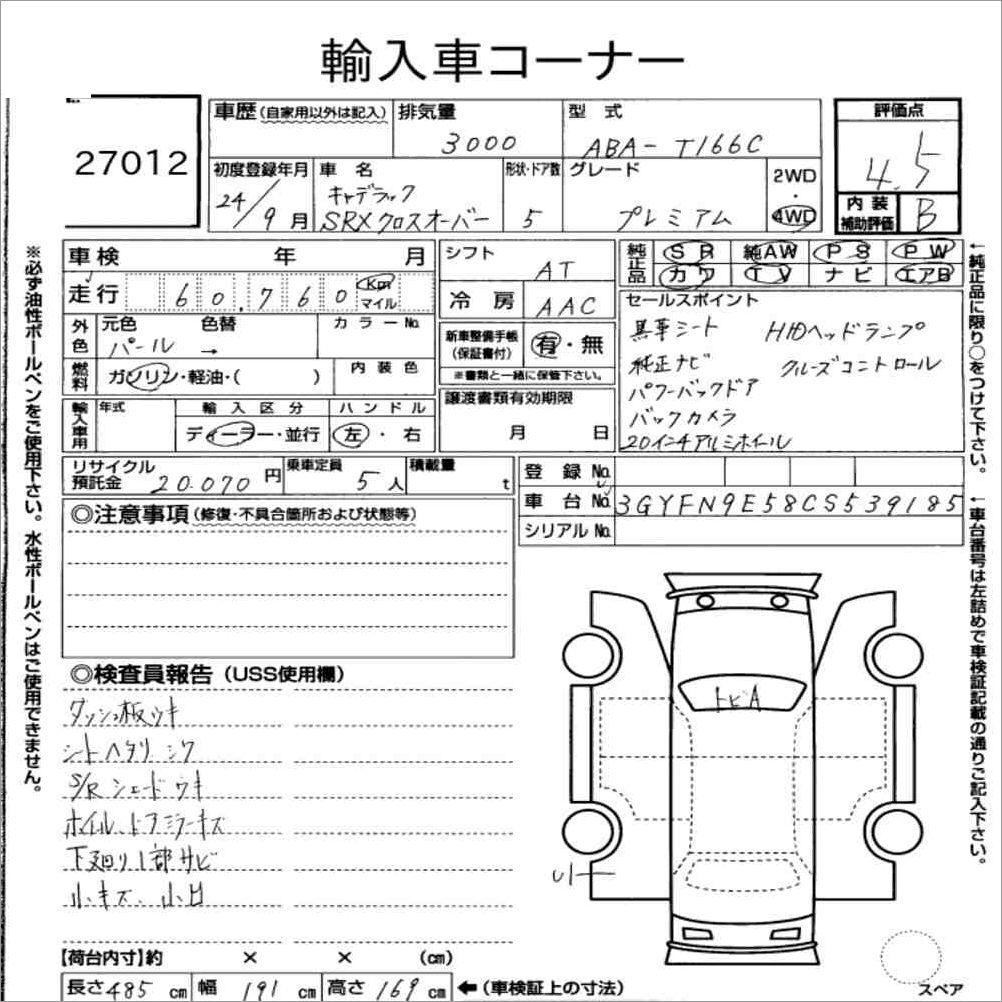 輸入車コーナー
27012
車歴(自家用以外は記入)
排気量
3000
型式
ABA-T166C
評価点
4.5
初度登録年月
24/9月
車名
キャデラック
SRXクロスオーバー
形状・ドア数
5
グレード
プレミアム
2WD
・
4WD
内装
補助評価
B
車検 年 月
シフト
AT
純正品
SR 純AW PS PW
カワ TV ナビ エアB
走行 60,760 Km
マイル
冷房
AAC
セールスポイント
黒革シート HIDヘッドランプ
純正ナビ クルーズコントロール
パワーバックドア
バックカメラ
20インチアルミホイール
外色
元色 色替 カラーNo.
パール →
新車整備手帳
(保証書付)
有・無
※書類と一緒に保管下さい。
燃料
ガソリン・軽油・( )
内装色
輸入車用
年式
輸入区分
ディーラー・並行
ハンドル
左・右
譲渡書類有効期限
月 日
リサイクル
預託金
20.070円
乗車定員
5人
積載量
t
登録No.
車台No.
3GYFN9E58CS539185
シリアルNo.
◎注意事項(修復・不具合箇所および状態等)
◎検査員報告(USS使用欄)
ダッシュ板ウキ
シートヘタリ シワ
S/Rシェードウキ
ホイル、ドアミラーキズ
下廻り1部サビ
小キズ、小凹
トビA
リヤー
【荷台内寸】約 × × (cm)
長さ485cm 幅191cm 高さ169cm ←(車検証上の寸法)
スペア
※必ず油性ボールペンをご使用下さい。水性ボールペンはご使用できません。
←純正品に限り○をつけて下さい。
←車台番号は左詰めで車検証記載の通りご記入下さい。